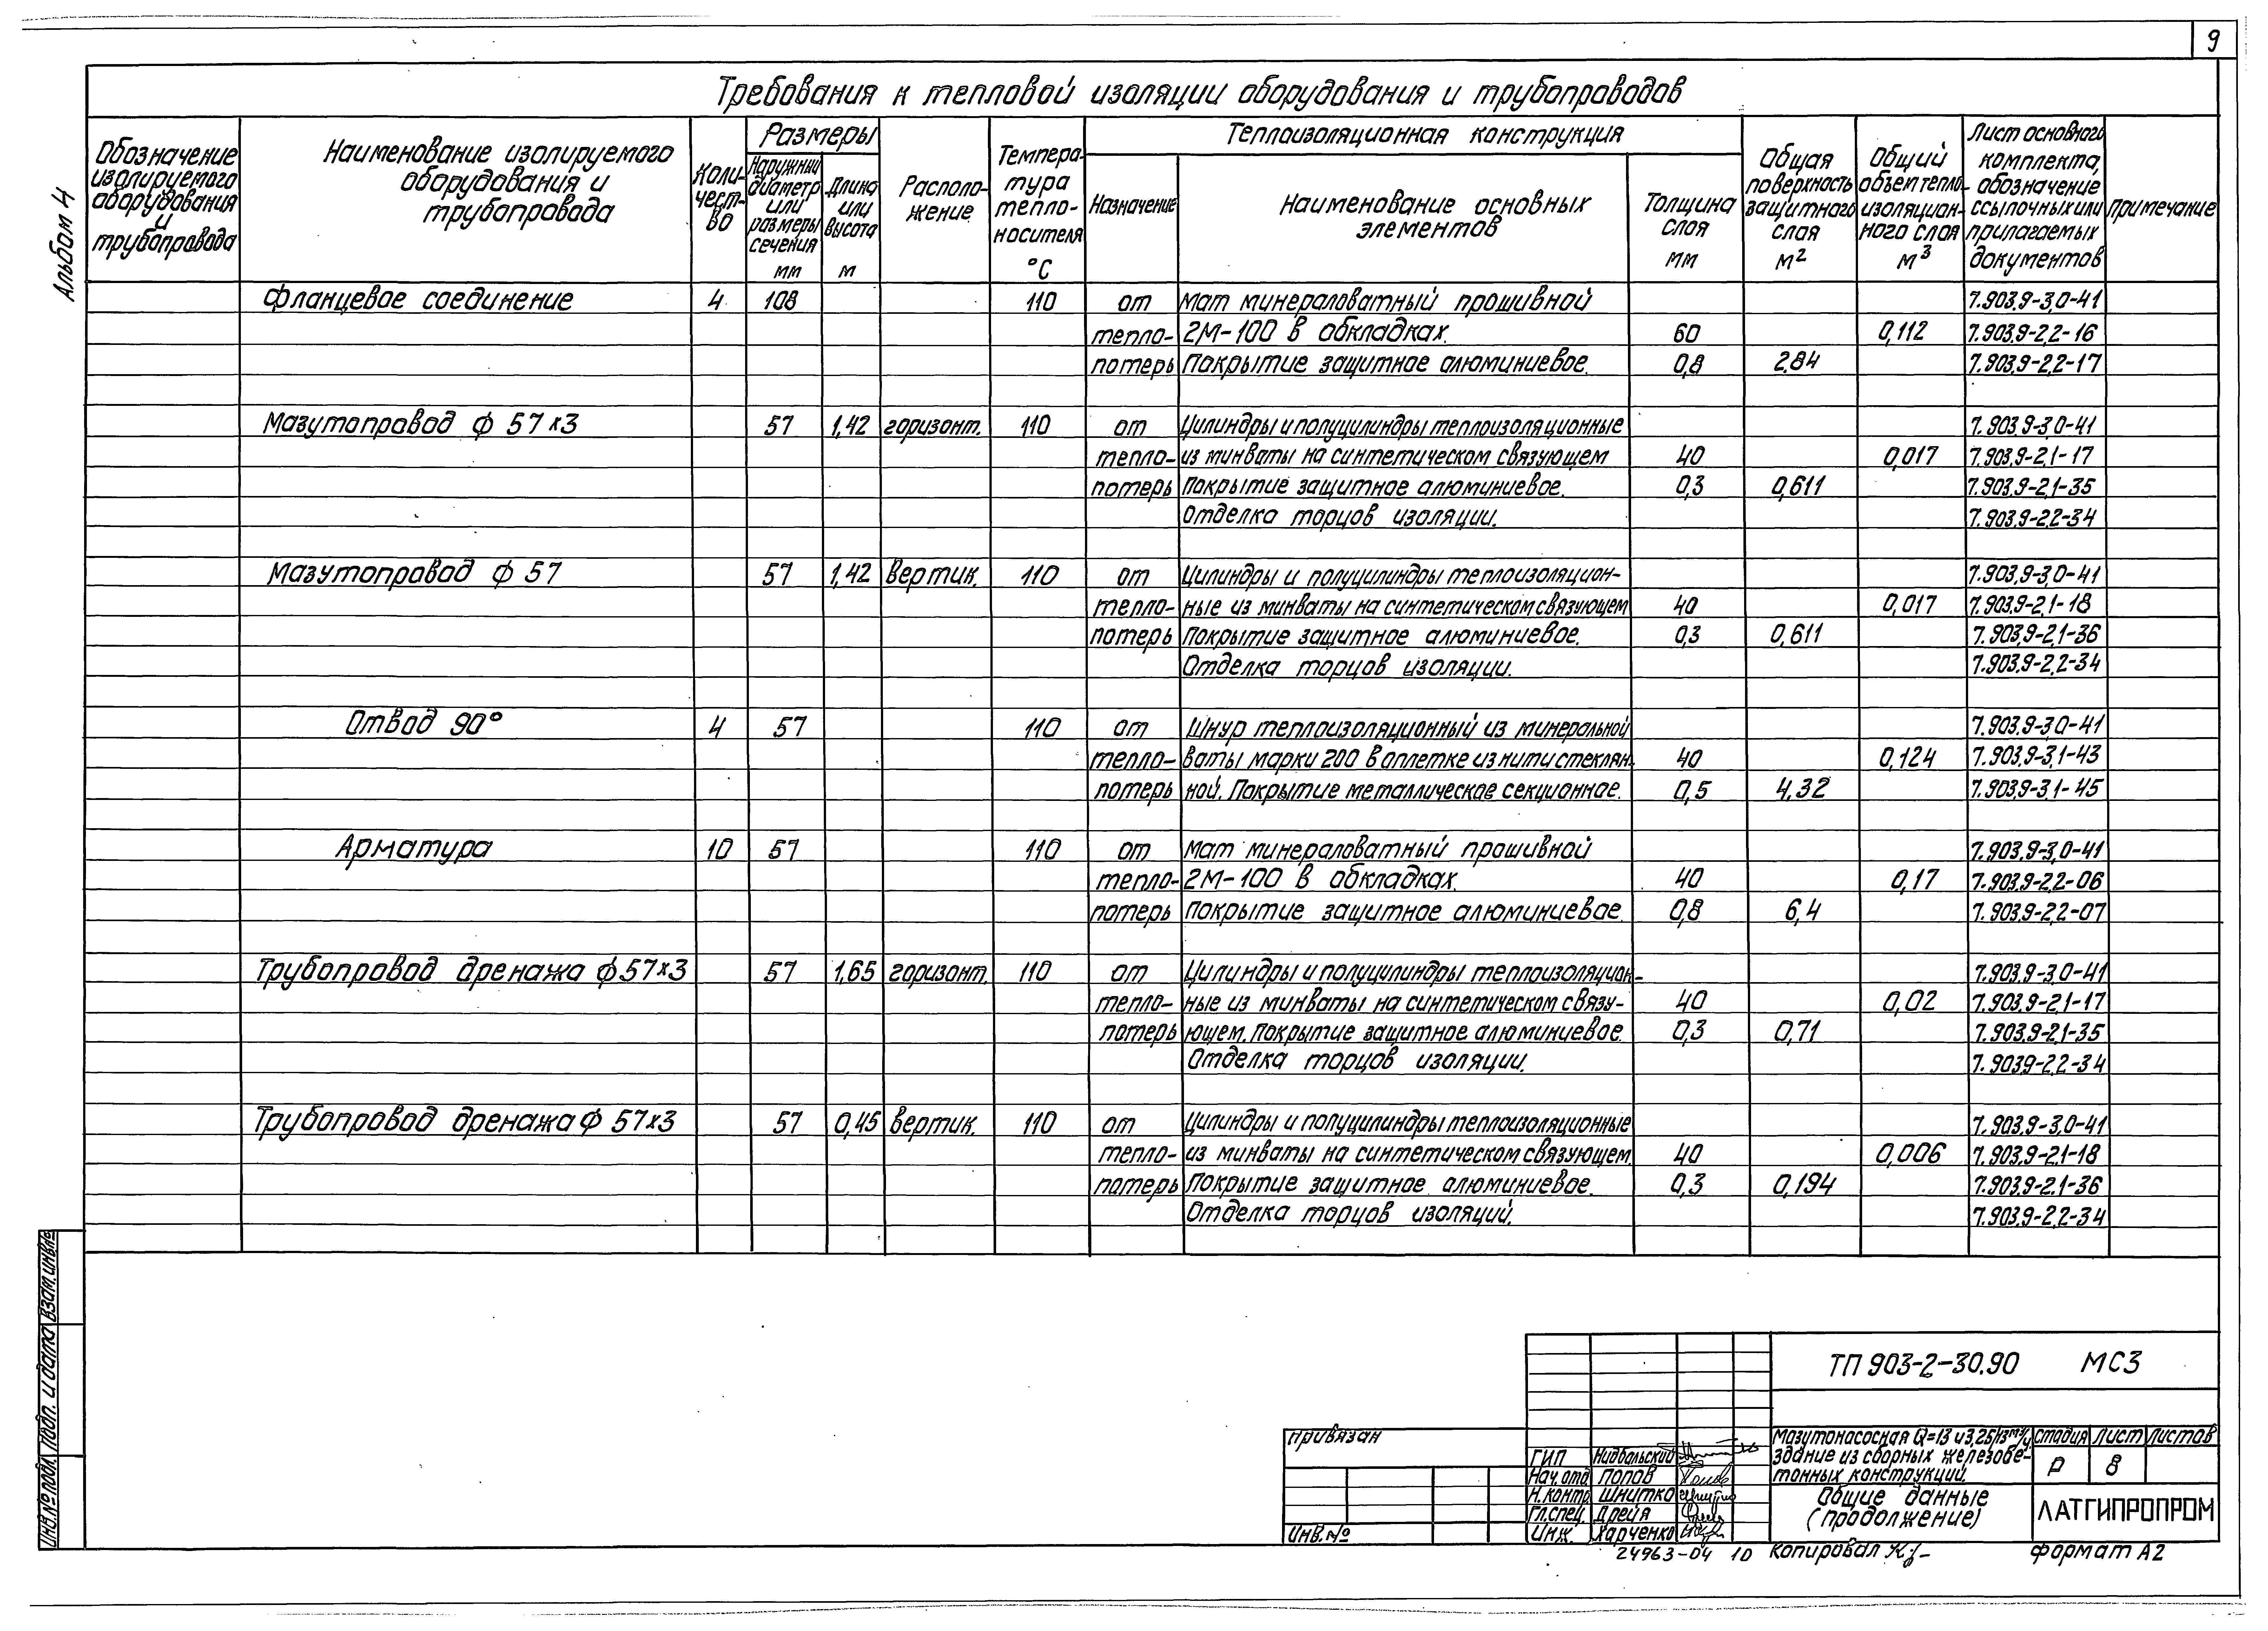 9
Альбом 4
Требования к тепловой изоляции оборудования и трубопроводов
Обозначение изолируемого оборудования и трубопровода
Наименование изолируемого оборудования и трубопровода
Количество
Размеры
Наружный диаметр или размеры сечения мм
Длина или высота м
Располо-жение
Темпера-тура тепло-носителя °С
Теплоизоляционная конструкция
Назначение
Наименование основных элементов
Толщина слоя мм
Общая поверхность защитного слоя м²
Общий объем тепло-изоляцион-ного слоя м³
Лист основного комплекта, обозначение ссылочных или прилагаемых документов
Примечание
Фланцевое соединение 4 108 110 от Мат минераловатный прошивной 7.903.9-3.0-41
тепло- 2М-100 в обкладках. 60 0,112 7.903.9-2.2-16
потерь Покрытие защитное алюминиевое. 0,8 2.84 7.903.9-2.2-17
Мазутопровод ф 57х3 57 1,42 горизонт. 110 от Цилиндры и полуцилиндры теплоизоляционные 7.903.9-3.0-41
тепло- из минваты на синтетическом связующем 40 0,017 7.903.9-2.1-17
потерь Покрытие защитное алюминиевое. 0,3 0,611 7.903.9-2.1-35
Отделка торцов изоляции. 7.903.9-2.2-34
Мазутопровод ф 57 57 1,42 вертик. 110 от Цилиндры и полуцилиндры теплоизоляцион- 7.903.9-3.0-41
тепло- ные из минваты на синтетическом связующем 40 0,017 7.903.9-2.1-18
потерь Покрытие защитное алюминиевое. 0,3 0,611 7.903.9-2.1-36
Отделка торцов изоляции. 7.903.9-2.2-34
Отвод 90° 4 57 110 от Шнур теплоизоляционный из минеральной 7.903.9-3.0-41
тепло- ваты марки 200 в оплетке из нити стеклян- 40 0,124 7.903.9-3.1-43
потерь ной. Покрытие металлическое секционное. 0,5 4,32 7.903.9-3.1-45
Арматура 10 57 110 от Мат минераловатный прошивной 7.903.9-3.0-41
тепло- 2М-100 в обкладках. 40 0,17 7.903.9-2.2-06
потерь Покрытие защитное алюминиевое 0,8 6,4 7.903.9-2.2-07
Трубопровод дренажа ф57х3 57 1,65 горизонт. 110 от Цилиндры и полуцилиндры теплоизоляцион- 7.903.9-3.0-41
тепло- ные из минваты на синтетическом связу- 40 0,02 7.903.9-2.1-17
потерь ющем. Покрытие защитное алюминиевое. 0,3 0,71 7.903.9-2.1-35
Отделка торцов изоляции. 7.903.9-2.2-34
Трубопровод дренажа ф 57х3 57 0,45 вертик. 110 от Цилиндры и полуцилиндры теплоизоляционные 7.903.9-3.0-41
тепло- из минваты на синтетическом связующем. 40 0,006 7.903.9-2.1-18
потерь Покрытие защитное алюминиевое. 0,3 0,194 7.903.9-2.1-36
Отделка торцов изоляций. 7.903.9-2.2-34
Инв.№ подл. Подп. и дата Взам.инв.№
Привязан
Инв.№
ТП 903-2-30.90 МС3
ГИП Нидбальский
Нач.отд Попов
Н.контр Шнитко
Гл.спец. Дрейя
Инж. Харченко
Мазутонасосная Q=13 и 3,25/13 м³/ч,
здание из сборных железобе-
тонных конструкций.
Стадия Лист Листов
Р 8
Общие данные
(продолжение)
ЛАТГИПРОПРОМ
24963-04 10 Копировал Формат А2